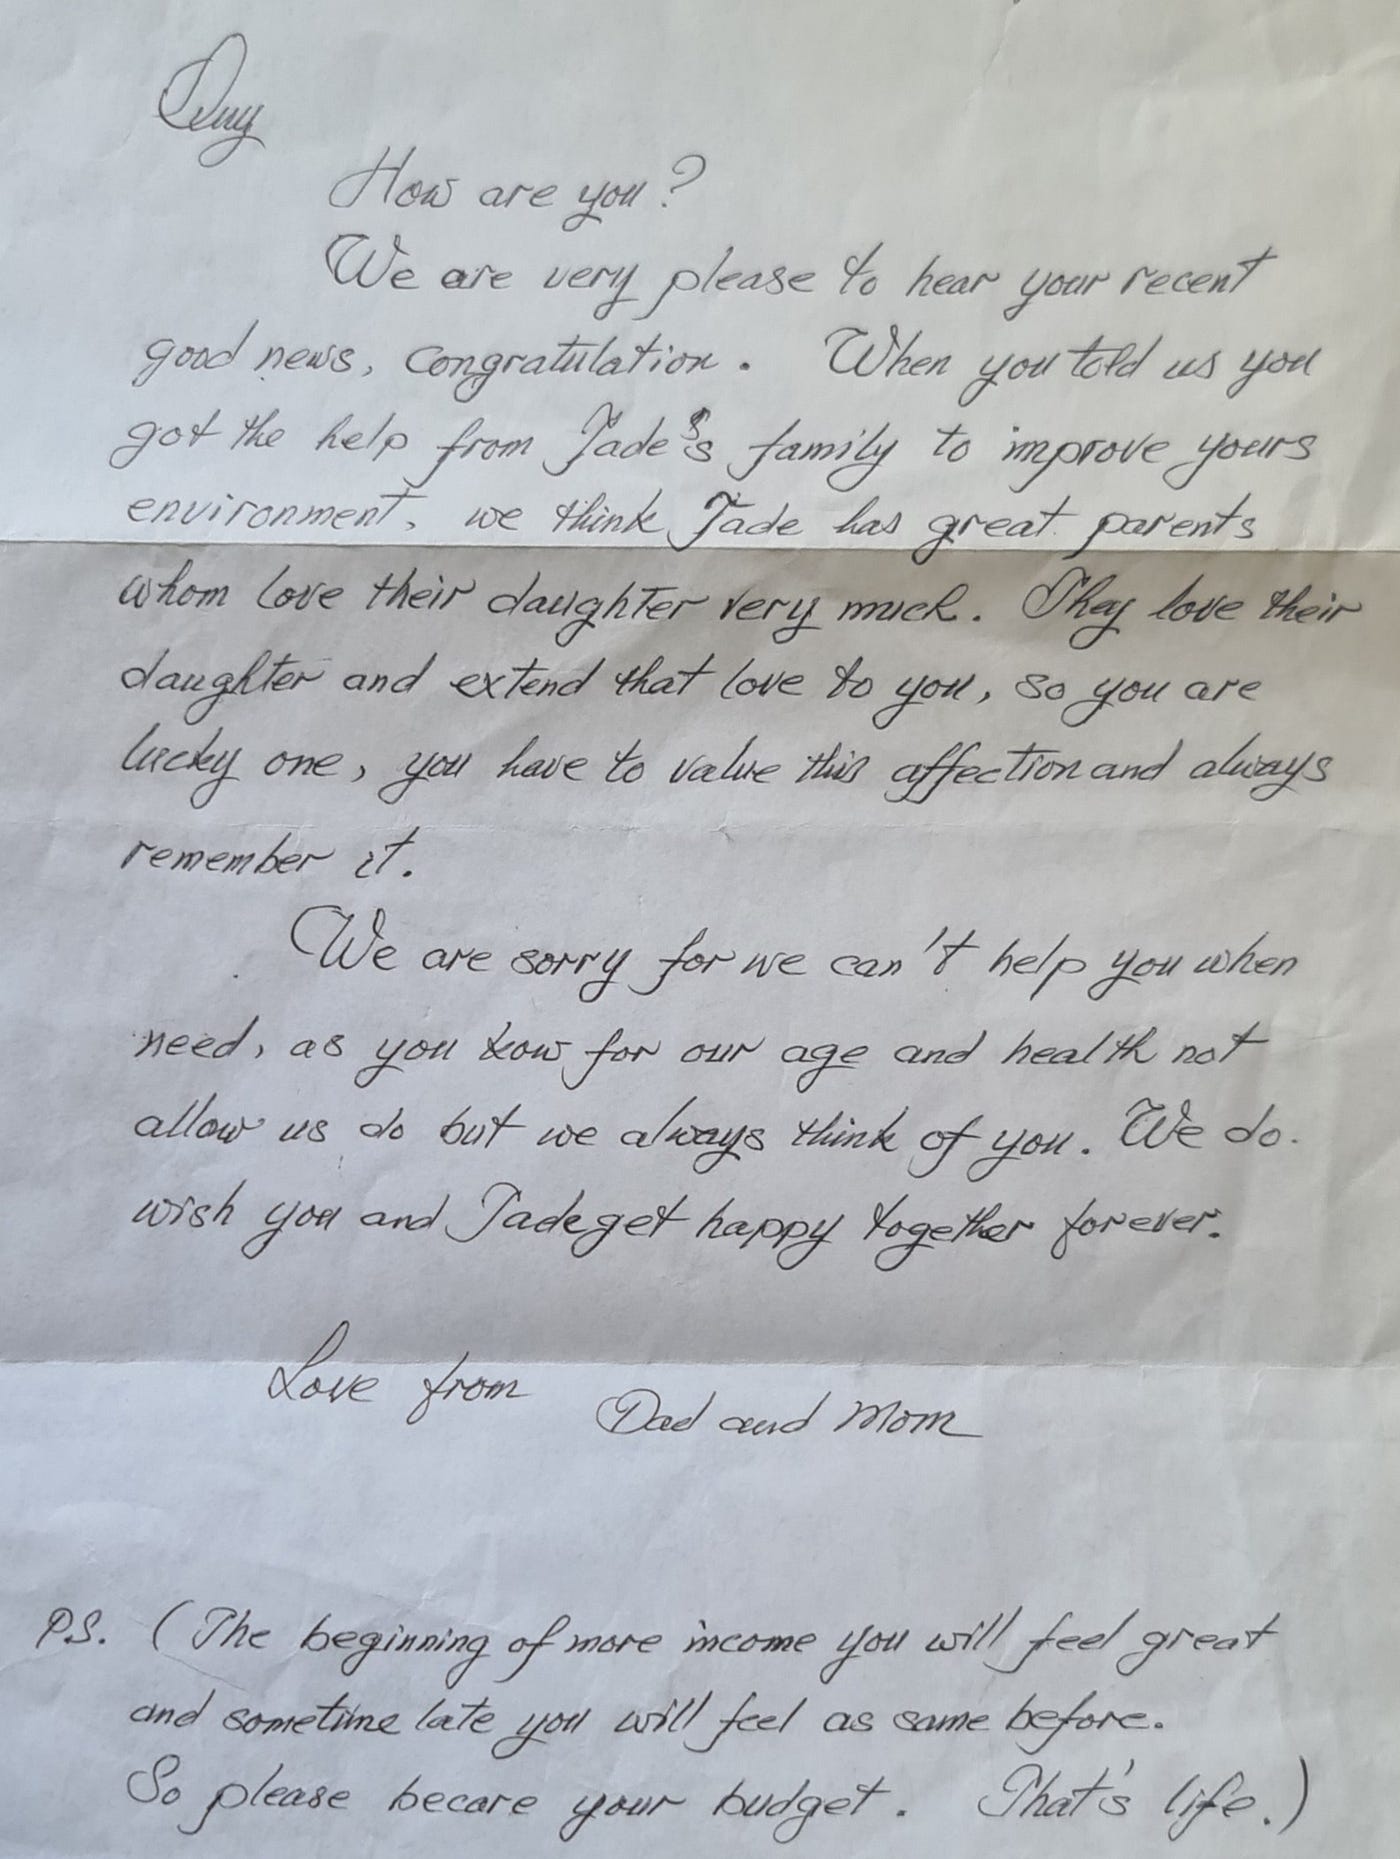 Duy
How are you?
We are very please to hear your recent
good news, congratulation. When you told us you
got the help from Jade's family to improve yours
environment, we think Jade has great parents
whom love their daughter very much. They love their
daughter and extend that love to you, so you are
lucky one, you have to value this affection and always
remember it.
We are sorry for we can't help you when
need, as you kow for our age and health not
allow us do but we always think of you. We do
wish you and Jade get happy together forever.
Love from
Dad and Mom
P.S. (The beginning of more income you will feel great
and sometime late you will feel as same before.
So please becare your budget. That's life.)